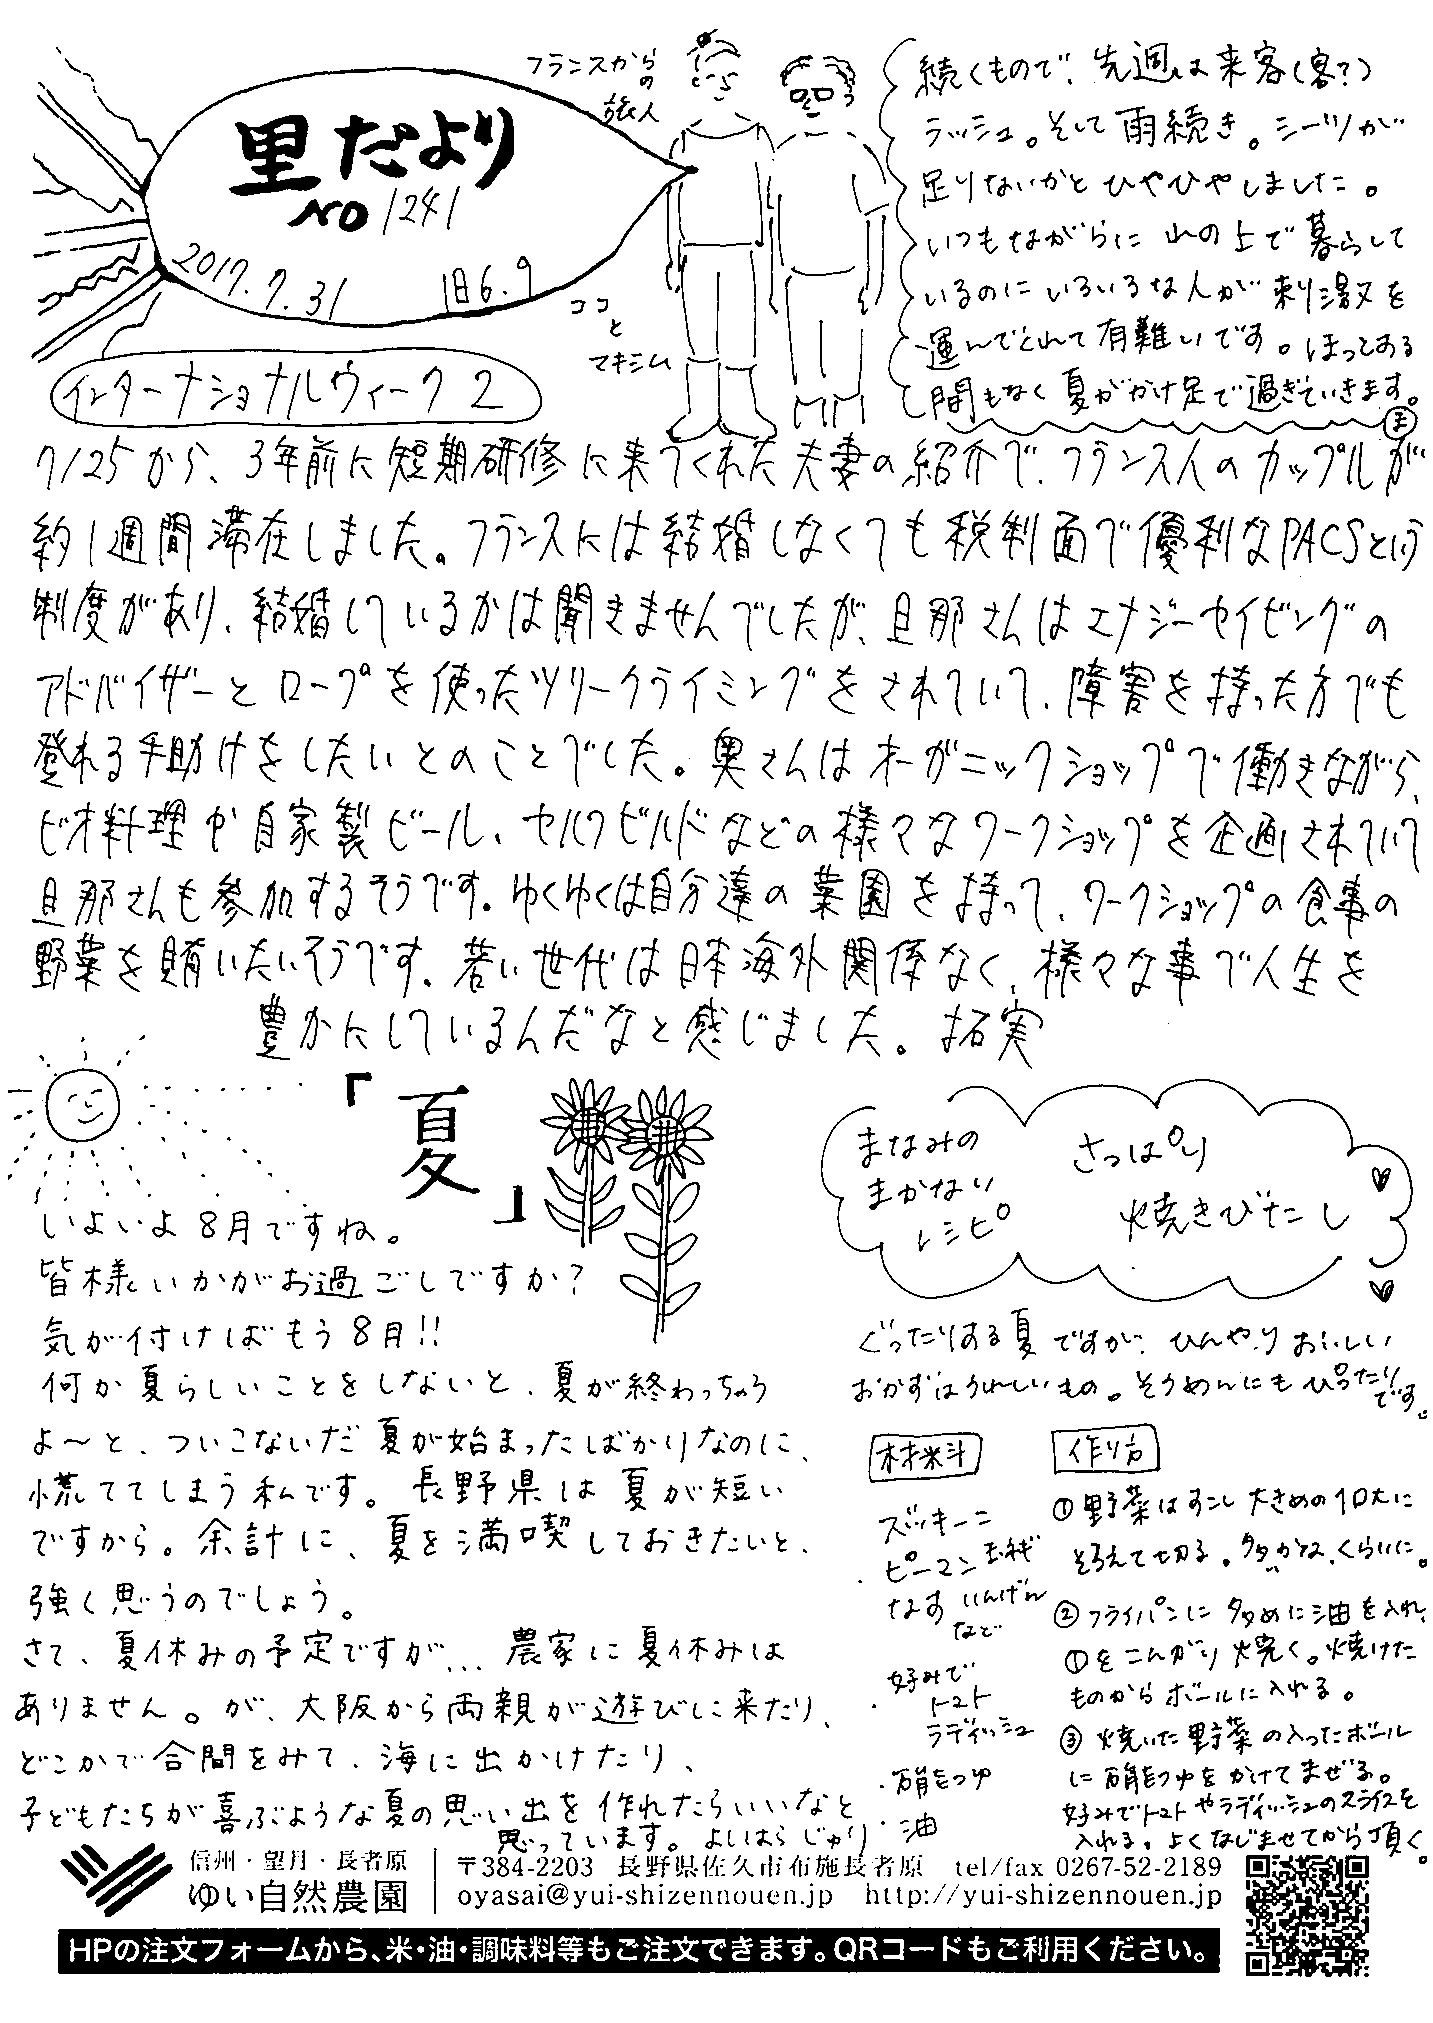 里だより
NO 1241
2017.7.31 旧6.9
フランスから
の
旅人
ココ
と
マキシム
続くもので、先週は来客(害?)
ラッシュ。そして雨続き。シーツが
足りないかとひやひやしました。
いつもながらに山の上で暮らして
いるのにいろいろな人が刺激を
運んでくれて有難いです。ほってある
間もなく夏がかけ足で過ぎていきます。
インターナショナルウィーク2
7/25から、3年前に短期研修に来てくれた夫妻の紹介で、フランス人のカップルが
約1週間滞在しました。フランスには結婚しなくても税制面で優利なPACSという
制度があり、結婚しているかは聞きませんでしたが、旦那さんはエナジーセイビングの
アドバイザーとロープを使ったツリークライミングをされていて、障害を持った方でも
登れる手助けをしたいとのことでした。奥さんはオーガニックショップで働きながら、
ビオ料理や自家製ビール、セルフビルドなどの様々なワークショップを企画されていて
旦那さんも参加するそうです。ゆくゆくは自分達の菜園を持って、ワークショップの食事の
野菜を賄いたいそうです。若い世代は日本海外関係なく、様々な事で人生を
豊かにしているんだなと感じました。拓実
「夏」
いよいよ8月ですね。
皆様いかがお過ごしですか?
気が付けばもう8月!!
何か夏らしいことをしないと、夏が終わっちゃう
よ〜と、ついこないだ夏が始まったばかりなのに、
慌ててしまう私です。長野県は夏が短い
ですから。余計に、夏を満喫しておきたいと、
強く思うのでしょう。
さて、夏休みの予定ですが... 農家に夏休みは
ありません。が、大阪から両親が遊びに来たり、
どこかで合間をみて、海に出かけたり、
子どもたちが喜ぶような夏の思い出を作れたらいいなと
思っています。よしはらじゅり
まなみの
まかない
レシピ
さっぱり
焼きびたし
ぐったりする夏ですが、ひんやりおいしい
おかずはうれしいもの。そうめんにもぴったり
です。
材料
ズッキーニ
・ピーマン 玉ねぎ
なす いんげん
など
・好みで
トマト
ラディッシュ
・万能つゆ
・油
作り方
①野菜はすこし大きめの1口大に
そろえて切る。多いかな、くらいに。
②フライパンに多めに油を入れ、
①をこんがり焼く。焼けた
ものからボールに入れる。
③焼いた野菜の入ったボール
に万能つゆをかけてまぜる。
好みでトマトやラディッシュのスライスを
入れる。よくなじませてから頂く。
信州・望月・長者原
ゆい自然農園
〒384-2203 長野県佐久市布施長者原 tel/fax 0267-52-2189
oyasai@yui-shizennouen.jp http://yui-shizennouen.jp
HPの注文フォームから、米・油・調味料等もご注文できます。QRコードもご利用ください。